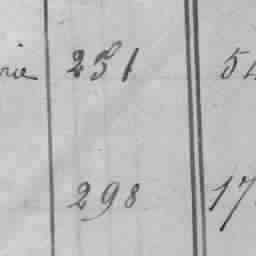 rie 251 54
298 17